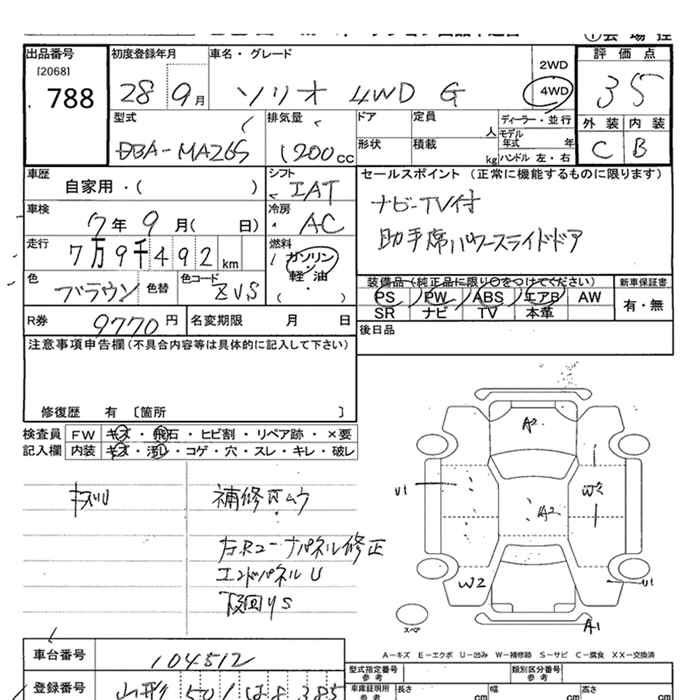 出品番号 [2068] 788
初度登録年月 28 9月
車名・グレード ソリオ 4WD G
2WD
4WD
評価点 35
外装 C 内装 B
型式 DBA-MA26S
排気量 1200cc
ドア 定員 人
形状 積載 kg
ディーラー・並行
モデル年式 年
ハンドル 左・右
車歴 自家用・( )
シフト IAT
車検 7年 9月( 日)
冷房 AC
走行 7万9千492km
燃料 ガソリン
軽・油
( )
色 ブラウン 色替 色コード ZVS
R券 9770円 名変期限 月 日
セールスポイント (正常に機能するものに限ります)
ナビ-TV付
助手席パワースライドドア
装備品(純正品に限り○をつけてください) 新車保証書
PS PW ABS エアB AW 有・無
SR ナビ TV 本革
後日品
注意事項申告欄(不具合内容等は具体的に記入して下さい)
修復歴 有 〔箇所 〕
検査員 FW キズ・飛石・ヒビ割・リペア跡・×要
記入欄 内装 キズ・汚れ・コゲ・穴・スレ・キレ・破レ
補修色ムラ
右Rコーナパネル修正
エンドパネルU
下回りS
A2
U1
W2
A2
W2
U1
A1
スペア
A-キズ E-エクボ U-凹み W-補修跡 S-サビ C-腐食 XX-交換済
車台番号 104512
登録番号 山形 501 は8 385
型式指定番号 参考
類別区分番号 参考
車庫証明用 参考 長さ cm 幅 cm 高さ cm